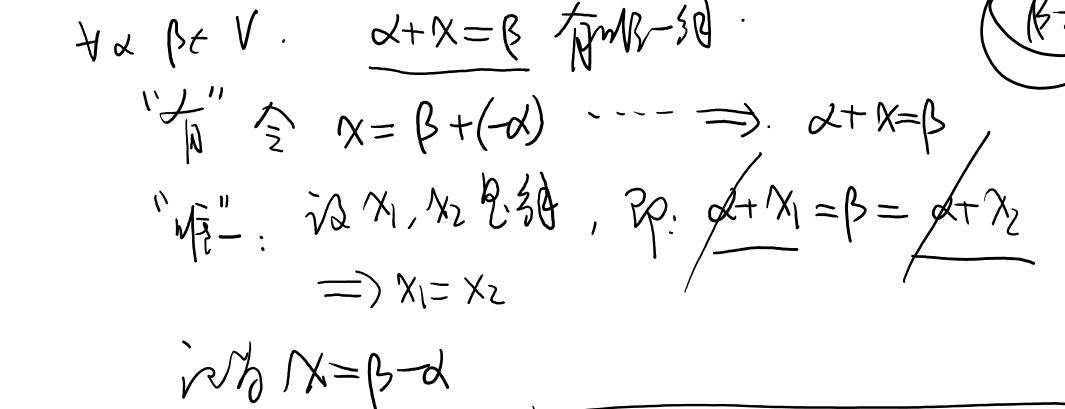 ∀α β∈ V. α+x=β 有唯一解.
"有" 令 x=β+(-α) ······ ⟹. α+x=β
"唯一": 设 x₁, x₂ 是解, 即: α+x₁=β=α+x₂
⟹ x₁=x₂
记为 x=β-α